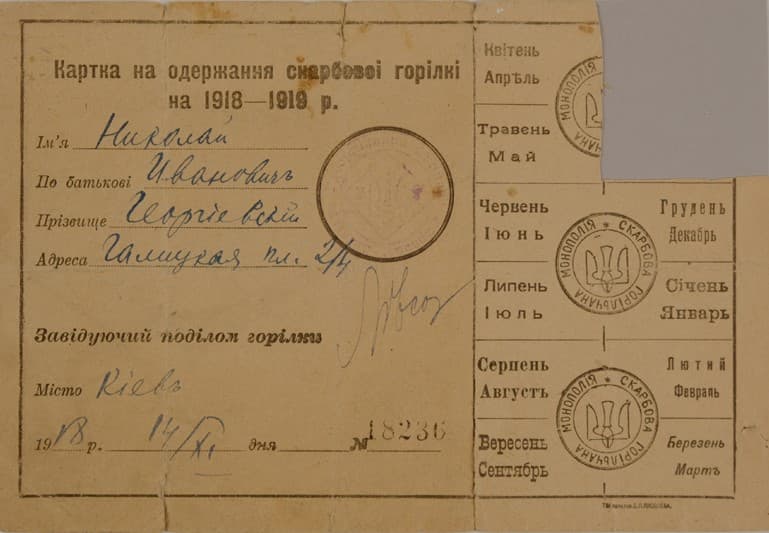 Картка на одержання скарбової горілкі
на 1918—1919 р.
Ім'я Николай
По батькові Ивановичъ
Прізвище Георгіевскій
Адреса Галицкая пл. 2/4
Завідуючий поділом горілки
Місто Кіевъ
1918 р. 14/XI дня № 18236
Квітень
Апрѣль
Травень
Май
Червень
Іюнь
Липень
Іюль
Серпень
Августъ
Вересень
Сентябрь
МОНОПОЛІЯ
МОНОПОЛІЯ ★ СКАРБОВА ГОРІЛЬЧАНА
МОНОПОЛІЯ ★ СКАРБОВА ГОРІЛЬЧАНА
Грудень
Декабрь
Січень
Январь
Лютий
Февраль
Березень
Мартъ